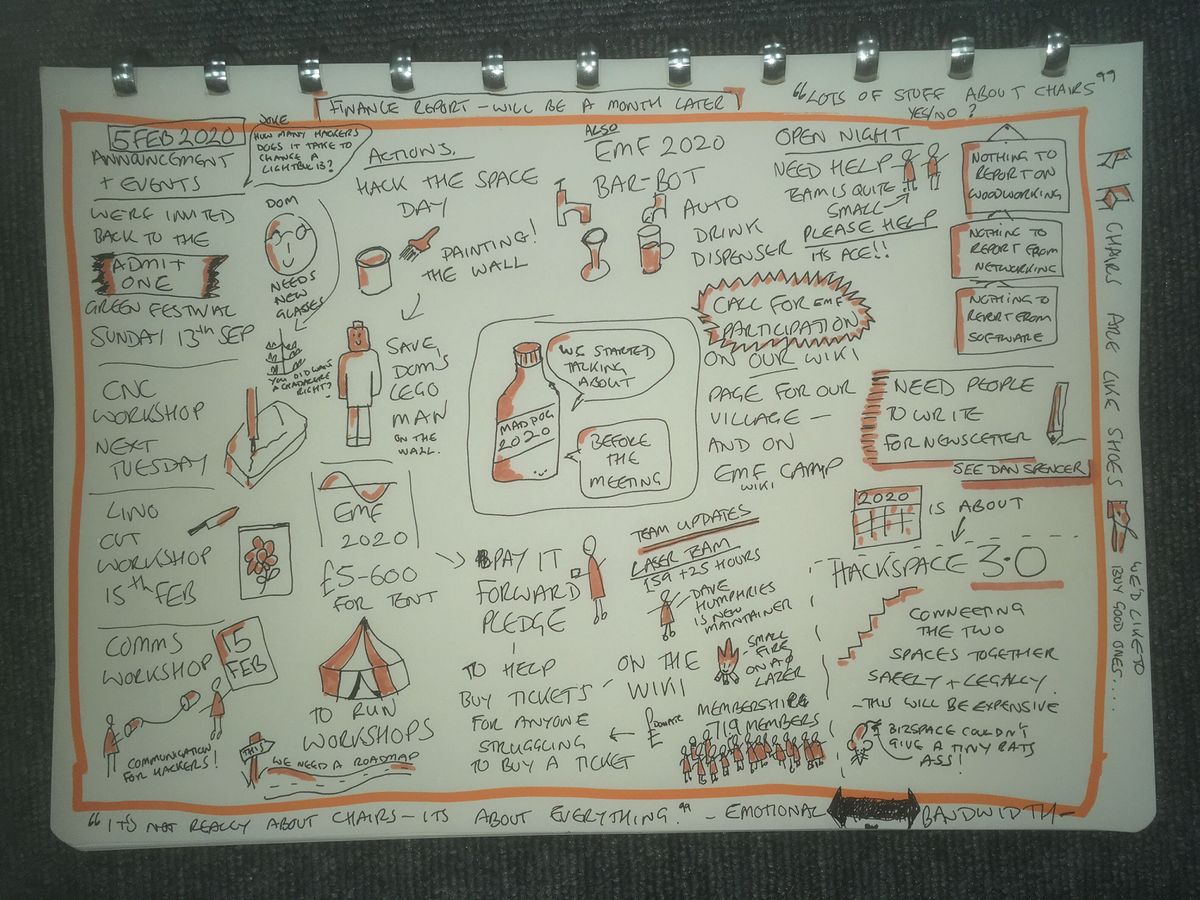 FINANCE REPORT - WILL BE A MONTH LATER
"LOTS OF STUFF ABOUT CHAIRS"
YES/NO?
5 FEB 2020
ANNOUNCMENT
+ EVENTS
WE'RE INVITED
BACK TO THE
ADMIT
ONE
GREEN FESTIVAL
SUNDAY 13TH SEP
CNC
WORKSHOP
NEXT
TUESDAY
LINO
CUT
WORKSHOP
15TH FEB
COMMS
WORKSHOP
15
FEB
COMMUNICATION
FOR HACKERS!
JOKE
HOW MANY HACKERS
DOES IT TAKE TO
CHANGE A
LIGHTBULB?
DOM
NEEDS
NEW
GLASSES
YOU DID WANT
RIGHT?
ACTIONS.
HACK THE SPACE
DAY
PAINTING!
THE WALL
SAVE
DOM'S
LEGO
MAN
ON THE
WALL.
EMF
2020
£5-600
FOR TENT
TO RUN
WORKSHOPS
THIS
WE NEED A ROADMAP
ALSO
EMF 2020
BAR-BOT
AUTO
DRINK
DISPENSER
MADDOG
2020
WE STARTED
TALKING
ABOUT
BEFORE
THE
MEETING
PAY IT
FORWARD
PLEDGE
TO HELP
BUY TICKETS
FOR ANYONE
STRUGGLING
TO BUY A TICKET
ON THE
WIKI
DONATE
OPEN NIGHT
NEED HELP
TEAM IS QUITE
SMALL
PLEASE HELP
ITS ACE!!
CALL FOR EMF
PARTICIPATION
ON OUR WIKI
PAGE FOR OUR
VILLAGE -
AND ON
EMF CAMP
WIKI
TEAM UPDATES
LASER TEAM
159 + 25 HOURS
DAVE
HUMPHRIES
IS NEW
MAINTAINER
SMALL
FIRE
ON A0
LAZER
MEMBERSHIP
719 MEMBERS
NOTHING TO
REPORT ON
WOODWORKING
NOTHING TO
REPORT FROM
NETWORKING
NOTHING TO
REPORT FROM
SOFTWARE
NEED PEOPLE
TO WRITE
FOR NEWSLETTER
SEE DAN SPENCER
2020
IS ABOUT
HACKSPACE 3.0
CONNECTING
THE TWO
SPACES TOGETHER
SAFELY + LEGALLY.
- THIS WILL BE EXPENSIVE
BIZSPACE COULDN'T
GIVE A TINY RATS
ASS!
CHAIRS ARE LIKE SHOES
WE'D LIKE TO
BUY GOOD ONES....
"IT'S NOT REALLY ABOUT CHAIRS - ITS ABOUT EVERYTHING." - EMOTIONAL BANDWIDTH -